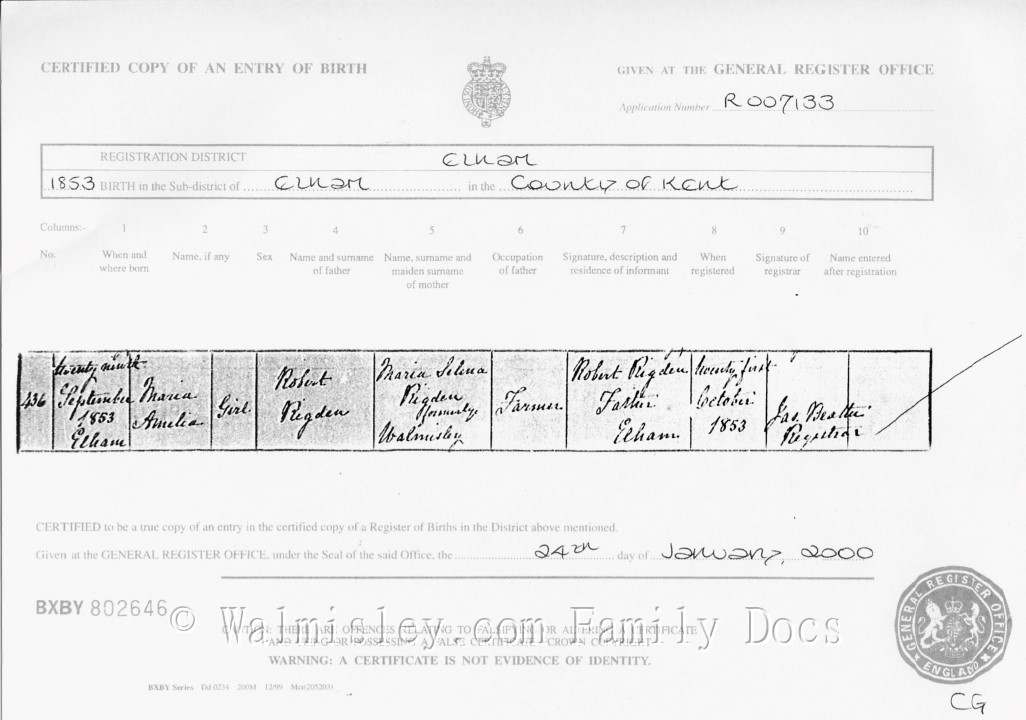 CERTIFIED COPY OF AN ENTRY OF BIRTH
GIVEN AT THE GENERAL REGISTER OFFICE
Application Number R007133
REGISTRATION DISTRICT Elham
1853 BIRTH in the Sub-district of Elham in the County of Kent
Columns:- 1 2 3 4 5 6 7 8 9 10
No. When and where born Name, if any Sex Name and surname of father Name, surname and maiden surname of mother Occupation of father Signature, description and residence of informant When registered Signature of registrar Name entered after registration
436
twenty ninth
September
1853
Elham
Maria
Amelia
Girl
Robert
Rigden
Maria Selena
Rigden
formerly
Walmisley
Farmer
Robert Rigden
Father
Elham
twenty first
October
1853
Jas. Beattie
Registrar
CERTIFIED to be a true copy of an entry in the certified copy of a Register of Births in the District above mentioned.
Given at the GENERAL REGISTER OFFICE, under the Seal of the said Office, the 24th day of January, 2000
BXBY 802646
© Walmisley.com Family Docs
CAUTION: THERE ARE OFFENCES RELATING TO FALSIFYING OR ALTERING A CERTIFICATE
AND USING OR POSSESSING A FALSE CERTIFICATE. CROWN COPYRIGHT
WARNING: A CERTIFICATE IS NOT EVIDENCE OF IDENTITY.
BXBY Series Dd 0234 200M 12/99 Mcr(205203)
GENERAL REGISTER OFFICE
ENGLAND
CG